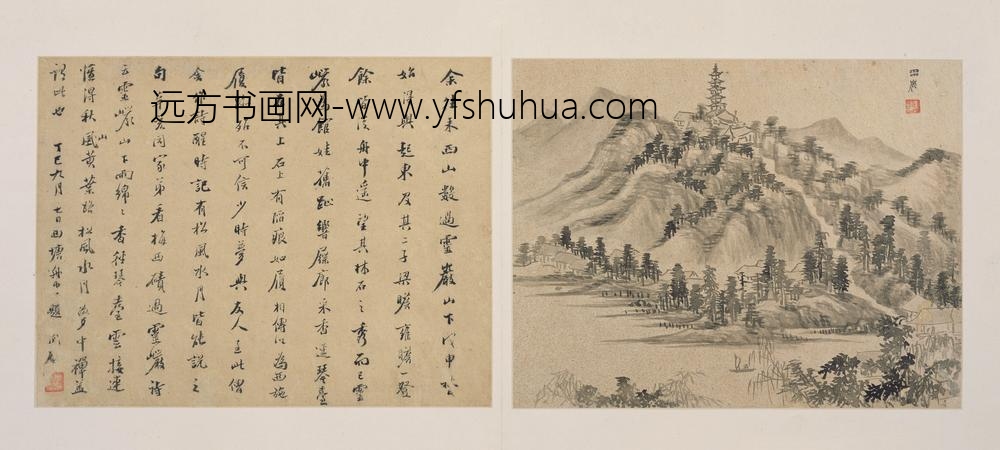 余往來西山數過靈巖山下戊申秋
始得與起東及其二子梁瞻雍瞻一登
餘皆從舟中遙望其林石之秀而已靈
巖爲館娃舊址響屧廊采香逕琴臺
皆在其上石上有陷痕如履相傳以爲西施
履跡殆不可信少時夢與友人至此僧
舍時醒時記有松風水月皆能說之
句同家弟看梅西磧過靈巖詩
云靈巖山下雨綿綿香徑琴臺雲接連
憶得秋風黃葉路松風水月夢中禪蓋
謂此也 丁巳九月七日西塘舟中題
远方书画网-www.yfshuhua.com